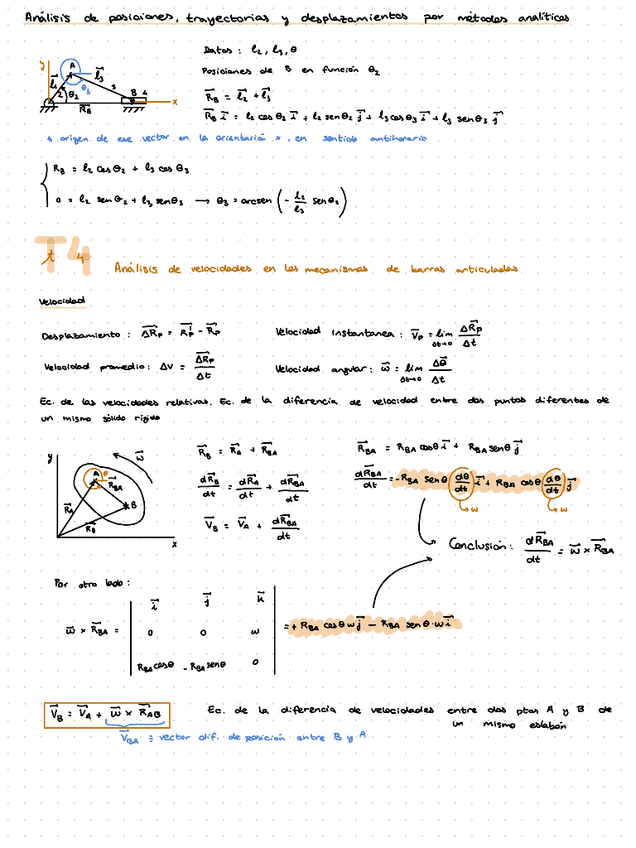 Análisis de posiciones, trayectorias y desplazamientos por métodos analíticos
Datos: l₂, l₃, θ
Posiciones de B en función θ₂
R⃗_B = l⃗₂ + l⃗₃
R⃗_B i⃗ = l₂ cos θ₂ i⃗ + l₂ sen θ₂ j⃗ + l₃ cos θ₃ i⃗ + l₃ sen θ₃ j⃗
y A l⃗₃ θ₃ 3 2 θ₂ B 4 x R⃗_B
origen de ese vector en la orientación x, en sentido antihorario
R_B = l₂ cos θ₂ + l₃ cos θ₃
0 = l₂ sen θ₂ + l₃ sen θ₃ → θ₃ = arcsen (- l₂/l₃ sen θ₂)
T4
Análisis de velocidades en los mecanismos de barras articuladas
Velocidad
Desplazamiento: ΔR⃗_P = R⃗'_P - R⃗_P
Velocidad instantánea: V⃗_P = lim Δt→0 ΔR⃗_P/Δt
Velocidad promedio: ΔV = ΔR⃗_P/Δt
Velocidad anguar: ω⃗ = lim Δt→0 Δθ⃗/Δt
Ec. de las velocidades relativas. Ec. de la diferencia de velocidad entre dos puntos diferentes de
un mismo sólido rígido
y ω⃗ A θ R⃗_BA B R⃗_A R⃗_B x
R⃗_B = R⃗_A + R⃗_BA
dR⃗_B/dt = dR⃗_A/dt + dR⃗_BA/dt
V⃗_B = V⃗_A + dR⃗_BA/dt
R⃗_BA = R_BA cosθ i⃗ + R_BA sen θ j⃗
dR⃗_BA/dt = -R_BA sen θ dθ/dt i⃗ + R_BA cos θ dθ/dt j⃗
ω ω
Conclusión: dR⃗_BA/dt = ω⃗ × R⃗_BA
Por otro lado:
i⃗ j⃗ k⃗
ω⃗ × R⃗_BA = 0 0 ω = + R_BA cos θ ω j⃗ - R_BA sen θ · ω i⃗
R_BA cosθ - R_BA senθ 0
V⃗_B = V⃗_A + ω⃗ × R⃗_AB
Ec. de la diferencia de velocidades entre dos ptos A y B de
un mismo eslabón
V⃗_BA ≡ vector dif. de posición entre B y A